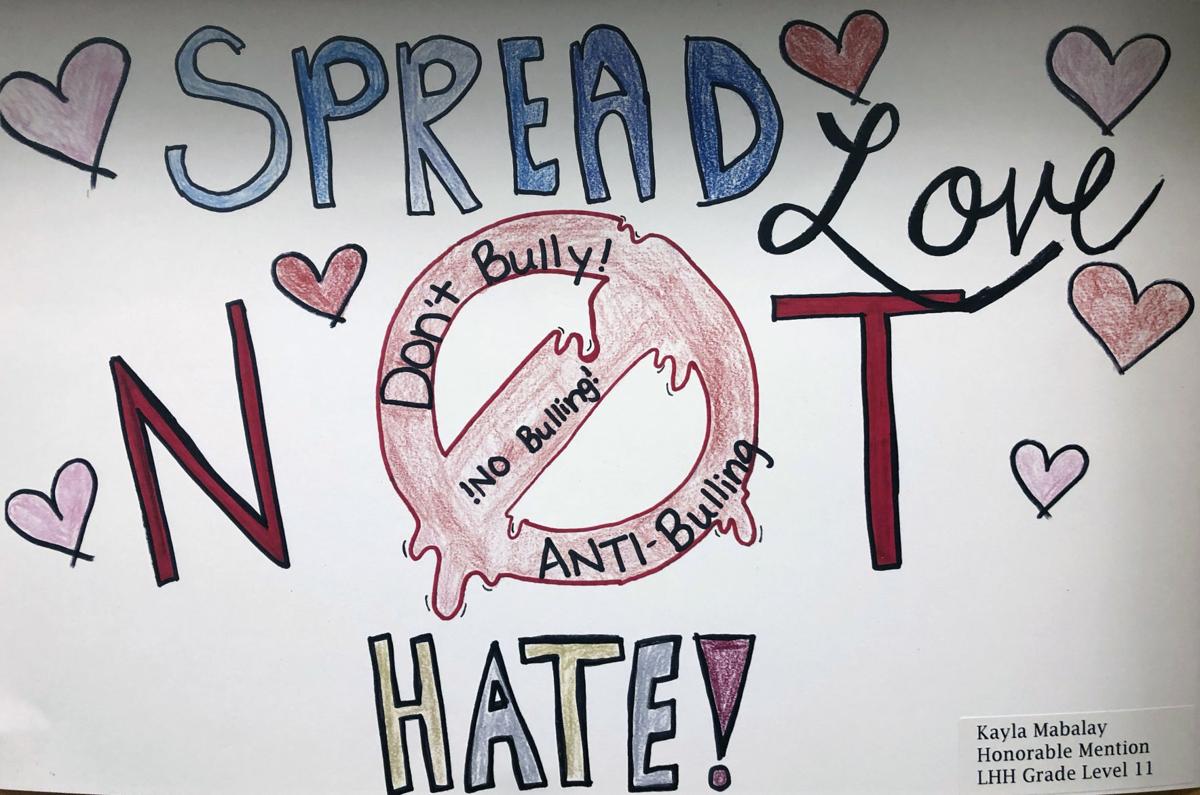 SPREAD
Love
NOT
Don't Bully!
!NO Bulling!
ANTI-Bulling
HATE!
Kayla Mabalay
Honorable Mention
LHH Grade Level 11